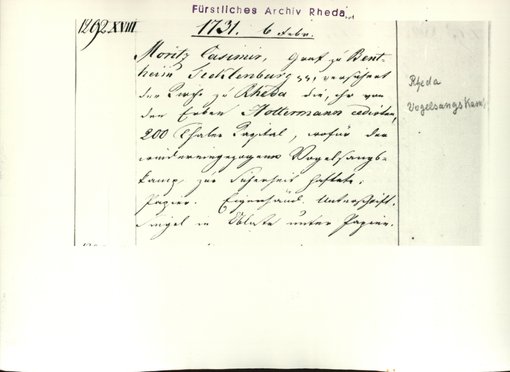 Fürstliches Archiv Rheda
1262. XVIII
1731. 6 Febr.
Moritz Casimir, Graf zu Bent-
heim Tecklenburg pp, versichert
der Kirche zu Rheda die, ihr von
den Erben Nottermann cedirten,
200 Thaler Capital, wofür der
wiedereingezogene Vogelsangs-
kamp zur Sicherheit haftete.
Papier. Eigenhänd. Unterschrift.
Siegel in Oblate unter Papier.
Rheda
Vogelsangskamp